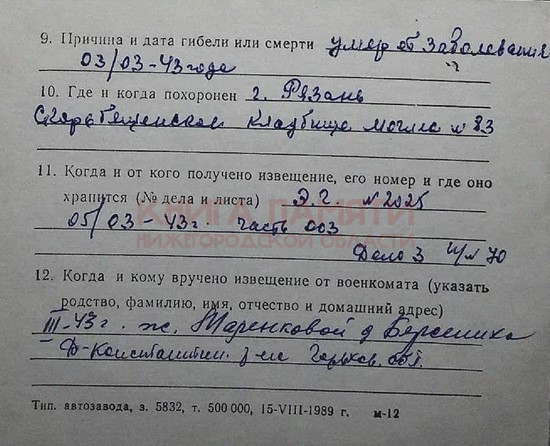 9. Причина и дата гибели или смерти умер от заболевания
03/03-43 года
10. Где и когда похоронен г. Рязань
Скорбященское кладбище могила № 83
11. Когда и от кого получено извещение, его номер и где оно
хранится (№ дела и листа) Э.Г. № 2025
05/03-43г. часть 003
Дело 3 н/л 70
КНИГА ПАМЯТИ
НИЖЕГОРОДСКОЙ ОБЛАСТИ
12. Когда и кому вручено извещение от военкомата (указать
родство, фамилию, имя, отчество и домашний адрес)
III-43г. ж. Таренковой д Березники
Д-Константин. р-на Горьков. обл.
Тип. автозавода, з. 5832, т. 500 000, 15-VIII-1989 г. м-12